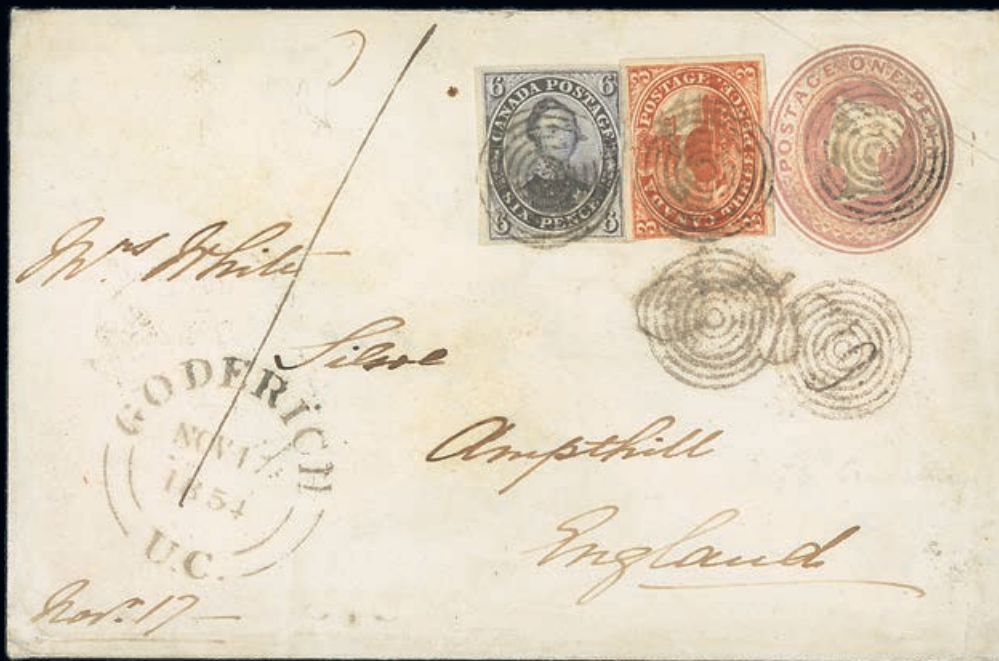 6 CANADA POSTAGE 6
6 SIX PENCE 6
3 POSTAGE 3
3 CANADA THREE PENCE 3
POSTAGE ONE PENNY
Mrs White
Ampthill
England
GODERICH
NOV 17
1854
U.C.
Novr. 17